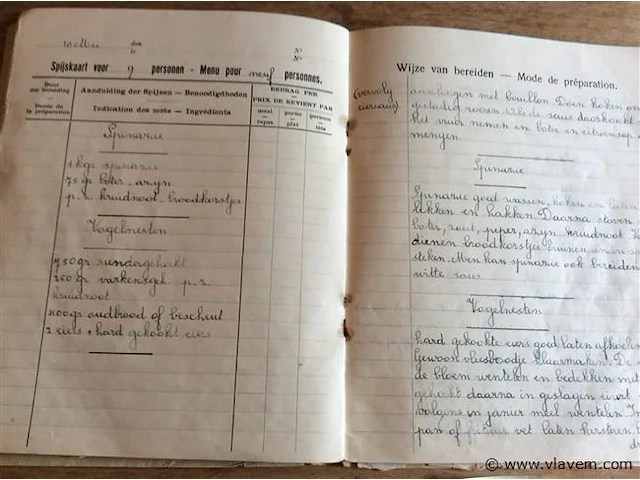 10 Mei den
le
N°
N°
Spijskaart voor 9 personen - Menu pour neuf personnes.
Duur der bereiding
Durée de la préparation
Aanduiding der Spijzen — Benoodigdheden
Indication des mets — Ingrédients
BEDRAG PER
PRIX DE REVIENT PAR
maal repas
portie plat
persoon tête
Spinazie
1 kgr spinazie
75 gr boter. azijn
p. z. kruidnoot. broodkorstjes
Vogelnesten
750 gr rundergehakt
250 gr varkensgeh. p. z.
kruidnoot
200 gr oudbrood of beschuit
2 eiers + hard gekookt eiers
Wijze van bereiden — Mode de préparation.
(vervolg
aanlengen met bouillon. Doen koken on
gestadig roeren. Als de saus doorkookt
het vuur nemen en boter en citroensap
mengen.
Spinazie
Spinazie goed wassen, koken en laten
lekken en hakken. Daarna stoven
boter, zout, peper, azijn kruidnoot. V
dienen broodkorstjes bruinen, en in sp
steken. Men kan spinazie ook bereiden
witte saus.
Vogelnesten
hard gekookte eiers goed laten afkoelen
gewoon vleesboodje klaarmaken. De
de bloem wentelen en bedekken met
gehakt daarna in geslagen eiwit
volgens in panier meel wenteln. In
pan of frituur vet laten korsteren.
© www.vlavem.com